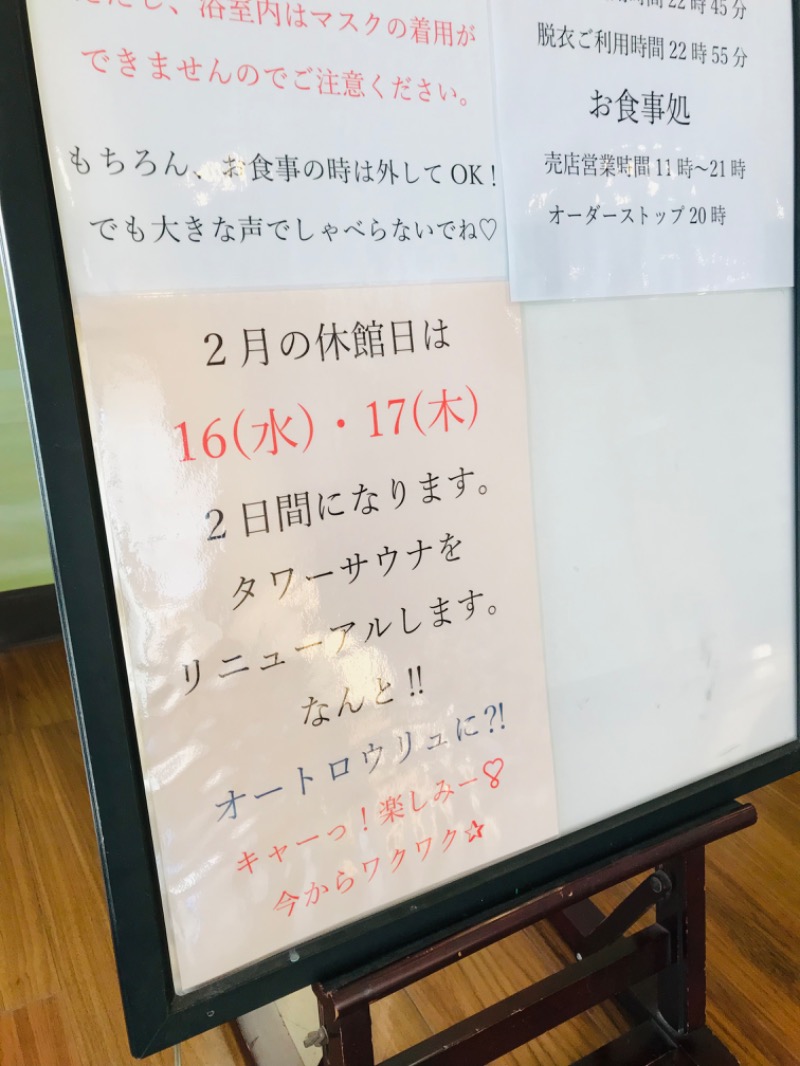 ただし、浴室内はマスクの着用が
できませんのでご注意ください。
もちろん、お食事の時は外してOK!
でも大きな声でしゃべらないでね♡
22時45分
脱衣ご利用時間22時55分
お食事処
売店営業時間11時～21時
オーダーストップ20時
2月の休館日は
16(水)・17(木)
2日間になります。
タワーサウナを
リニューアルします。
なんと!!
オートロウリュに?!
キャーっ!楽しみー
今からワクワク☆